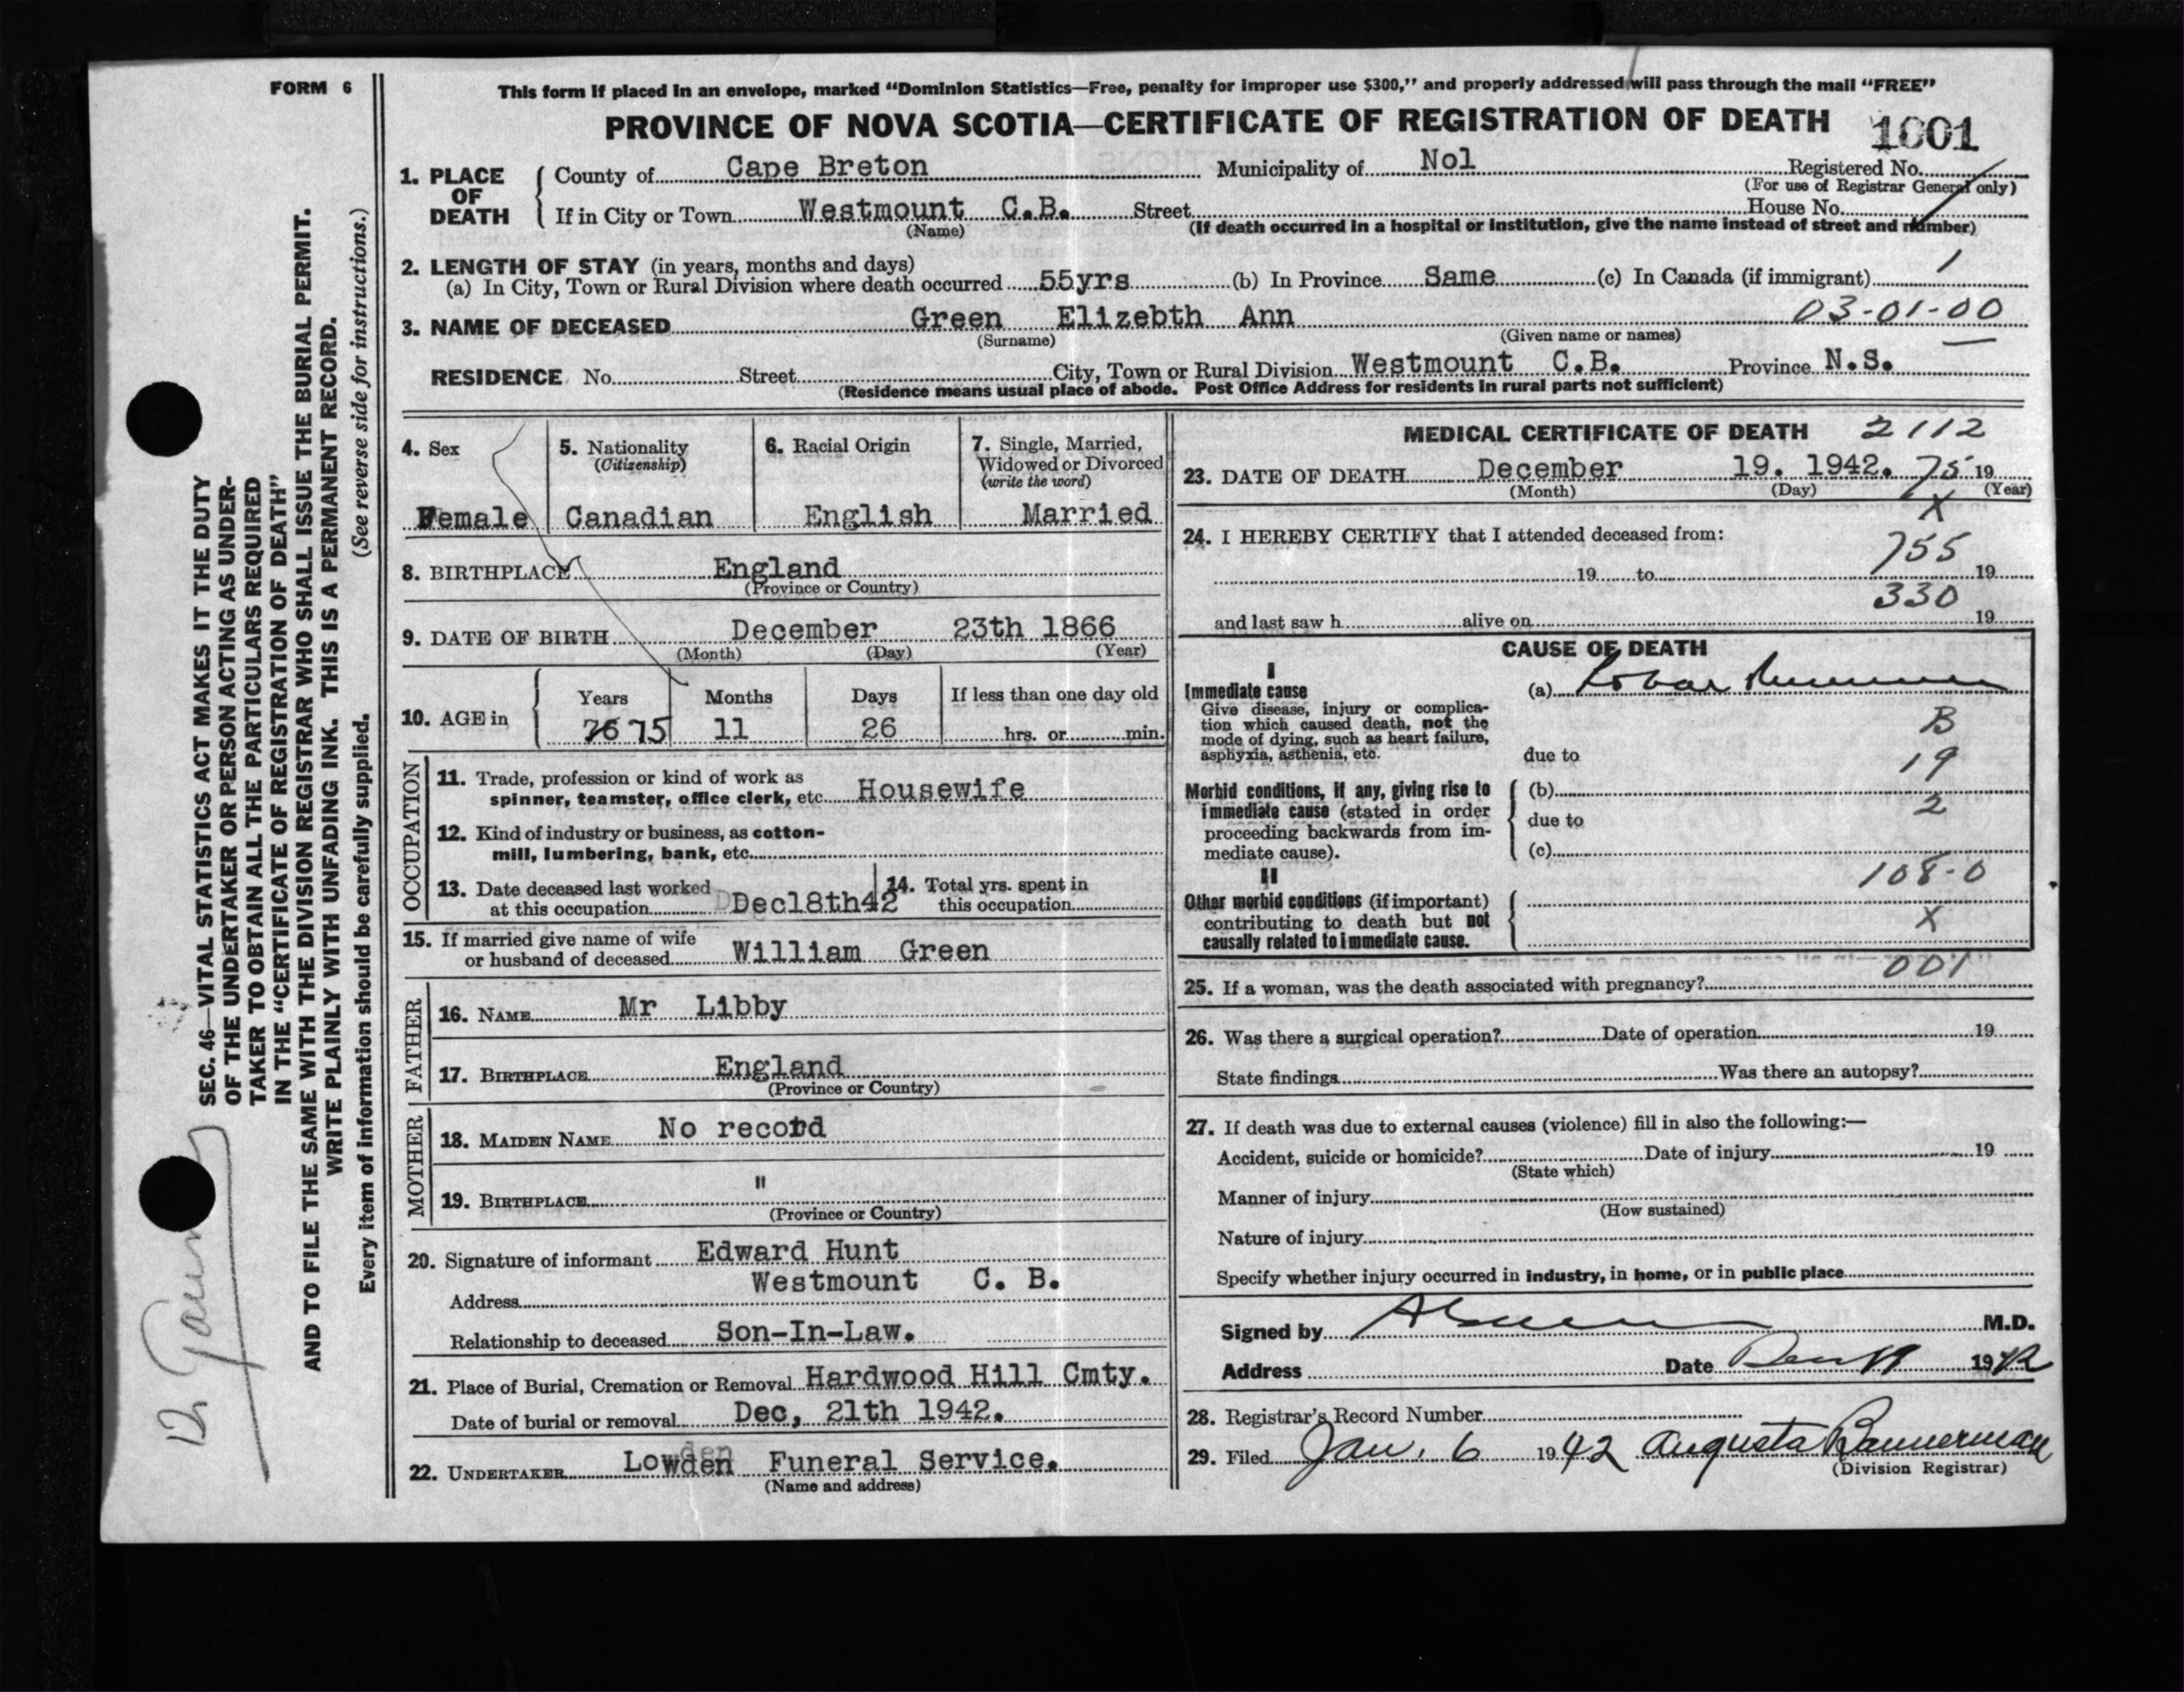 FORM 6
This form if placed in an envelope, marked “Dominion Statistics—Free, penalty for improper use $300,” and properly addressed will pass through the mail “FREE”
PROVINCE OF NOVA SCOTIA—CERTIFICATE OF REGISTRATION OF DEATH 1001
1. PLACE OF DEATH
County of Cape Breton Municipality of No1 Registered No.
(For use of Registrar General only)
If in City or Town Westmount C.B. Street House No.
(Name) (If death occurred in a hospital or institution, give the name instead of street and number)
2. LENGTH OF STAY (in years, months and days)
(a) In City, Town or Rural Division where death occurred 55yrs (b) In Province Same (c) In Canada (if immigrant)
3. NAME OF DECEASED Green Elizebth Ann 03-01-00
(Surname) (Given name or names)
RESIDENCE No. Street City, Town or Rural Division Westmount C.B. Province N.S.
(Residence means usual place of abode. Post Office Address for residents in rural parts not sufficient)
4. Sex
Female
5. Nationality
(Citizenship)
Canadian
6. Racial Origin
English
7. Single, Married,
Widowed or Divorced
(write the word)
Married
8. BIRTHPLACE England
(Province or Country)
9. DATE OF BIRTH December 23th 1866
(Month) (Day) (Year)
10. AGE in
Years Months Days If less than one day old
76 75 11 26 hrs. or min.
OCCUPATION
11. Trade, profession or kind of work as
spinner, teamster, office clerk, etc. Housewife
12. Kind of industry or business, as cotton-
mill, lumbering, bank, etc.
13. Date deceased last worked
at this occupation Dec18th42
14. Total yrs. spent in
this occupation
15. If married give name of wife
or husband of deceased William Green
FATHER
16. NAME Mr Libby
17. BIRTHPLACE England
(Province or Country)
MOTHER
18. MAIDEN NAME No record
19. BIRTHPLACE "
(Province or Country)
20. Signature of informant Edward Hunt
Westmount C. B.
Address
Relationship to deceased Son-In-Law.
21. Place of Burial, Cremation or Removal Hardwood Hill Cmty.
Date of burial or removal Dec, 21th 1942.
22. UNDERTAKER Lowden Funeral Service.
(Name and address)
MEDICAL CERTIFICATE OF DEATH 2112
23. DATE OF DEATH December 19. 1942. 75 19
(Month) (Day) (Year)
X
24. I HEREBY CERTIFY that I attended deceased from:
755
19 to 19
330
and last saw h alive on 19
CAUSE OF DEATH
I
Immediate cause
Give disease, injury or complica-
tion which caused death, not the
mode of dying, such as heart failure,
asphyxia, asthenia, etc.
(a) Lobar Pneumonia
B
due to
19
Morbid conditions, if any, giving rise to
immediate cause (stated in order
proceeding backwards from im-
mediate cause).
(b)
2
due to
(c)
108-0
II
Other morbid conditions (if important)
contributing to death but not
causally related to immediate cause.
X
001
25. If a woman, was the death associated with pregnancy?
26. Was there a surgical operation? Date of operation 19
State findings Was there an autopsy?
27. If death was due to external causes (violence) fill in also the following:—
Accident, suicide or homicide? Date of injury 19
(State which)
Manner of injury
(How sustained)
Nature of injury
Specify whether injury occurred in industry, in home, or in public place
Signed by M.D.
Address Date Dec 19 1942
28. Registrar's Record Number
29. Filed Jan. 6 1942 Augusta Bannerman
(Division Registrar)
SEC. 46—VITAL STATISTICS ACT MAKES IT THE DUTY
OF THE UNDERTAKER OR PERSON ACTING AS UNDER-
TAKER TO OBTAIN ALL THE PARTICULARS REQUIRED
IN THE “CERTIFICATE OF REGISTRATION OF DEATH”
AND TO FILE THE SAME WITH THE DIVISION REGISTRAR WHO SHALL ISSUE THE BURIAL PERMIT.
WRITE PLAINLY WITH UNFADING INK. THIS IS A PERMANENT RECORD.
(See reverse side for instructions.)
Every item of information should be carefully supplied.
12